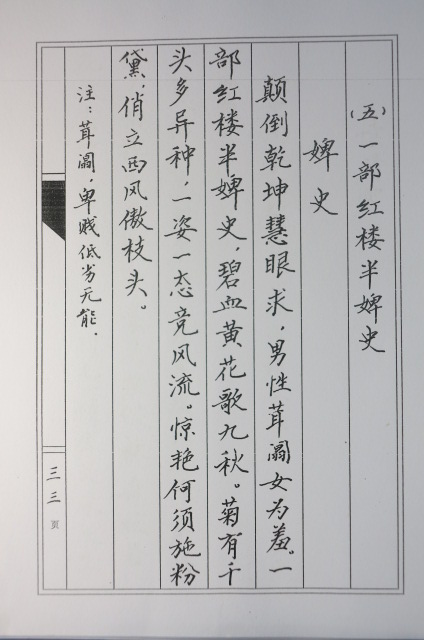 （五）一部红楼半婢史
婢史
颠倒乾坤慧眼求，男性茸阘女为羞。一
部红楼半婢史，碧血黄花歌九秋。菊有千
头多异种，一姿一态竞风流。惊艳何须施粉
黛，俏立西风傲枝头。
注：茸阘，卑贱低劣无能．
三三页